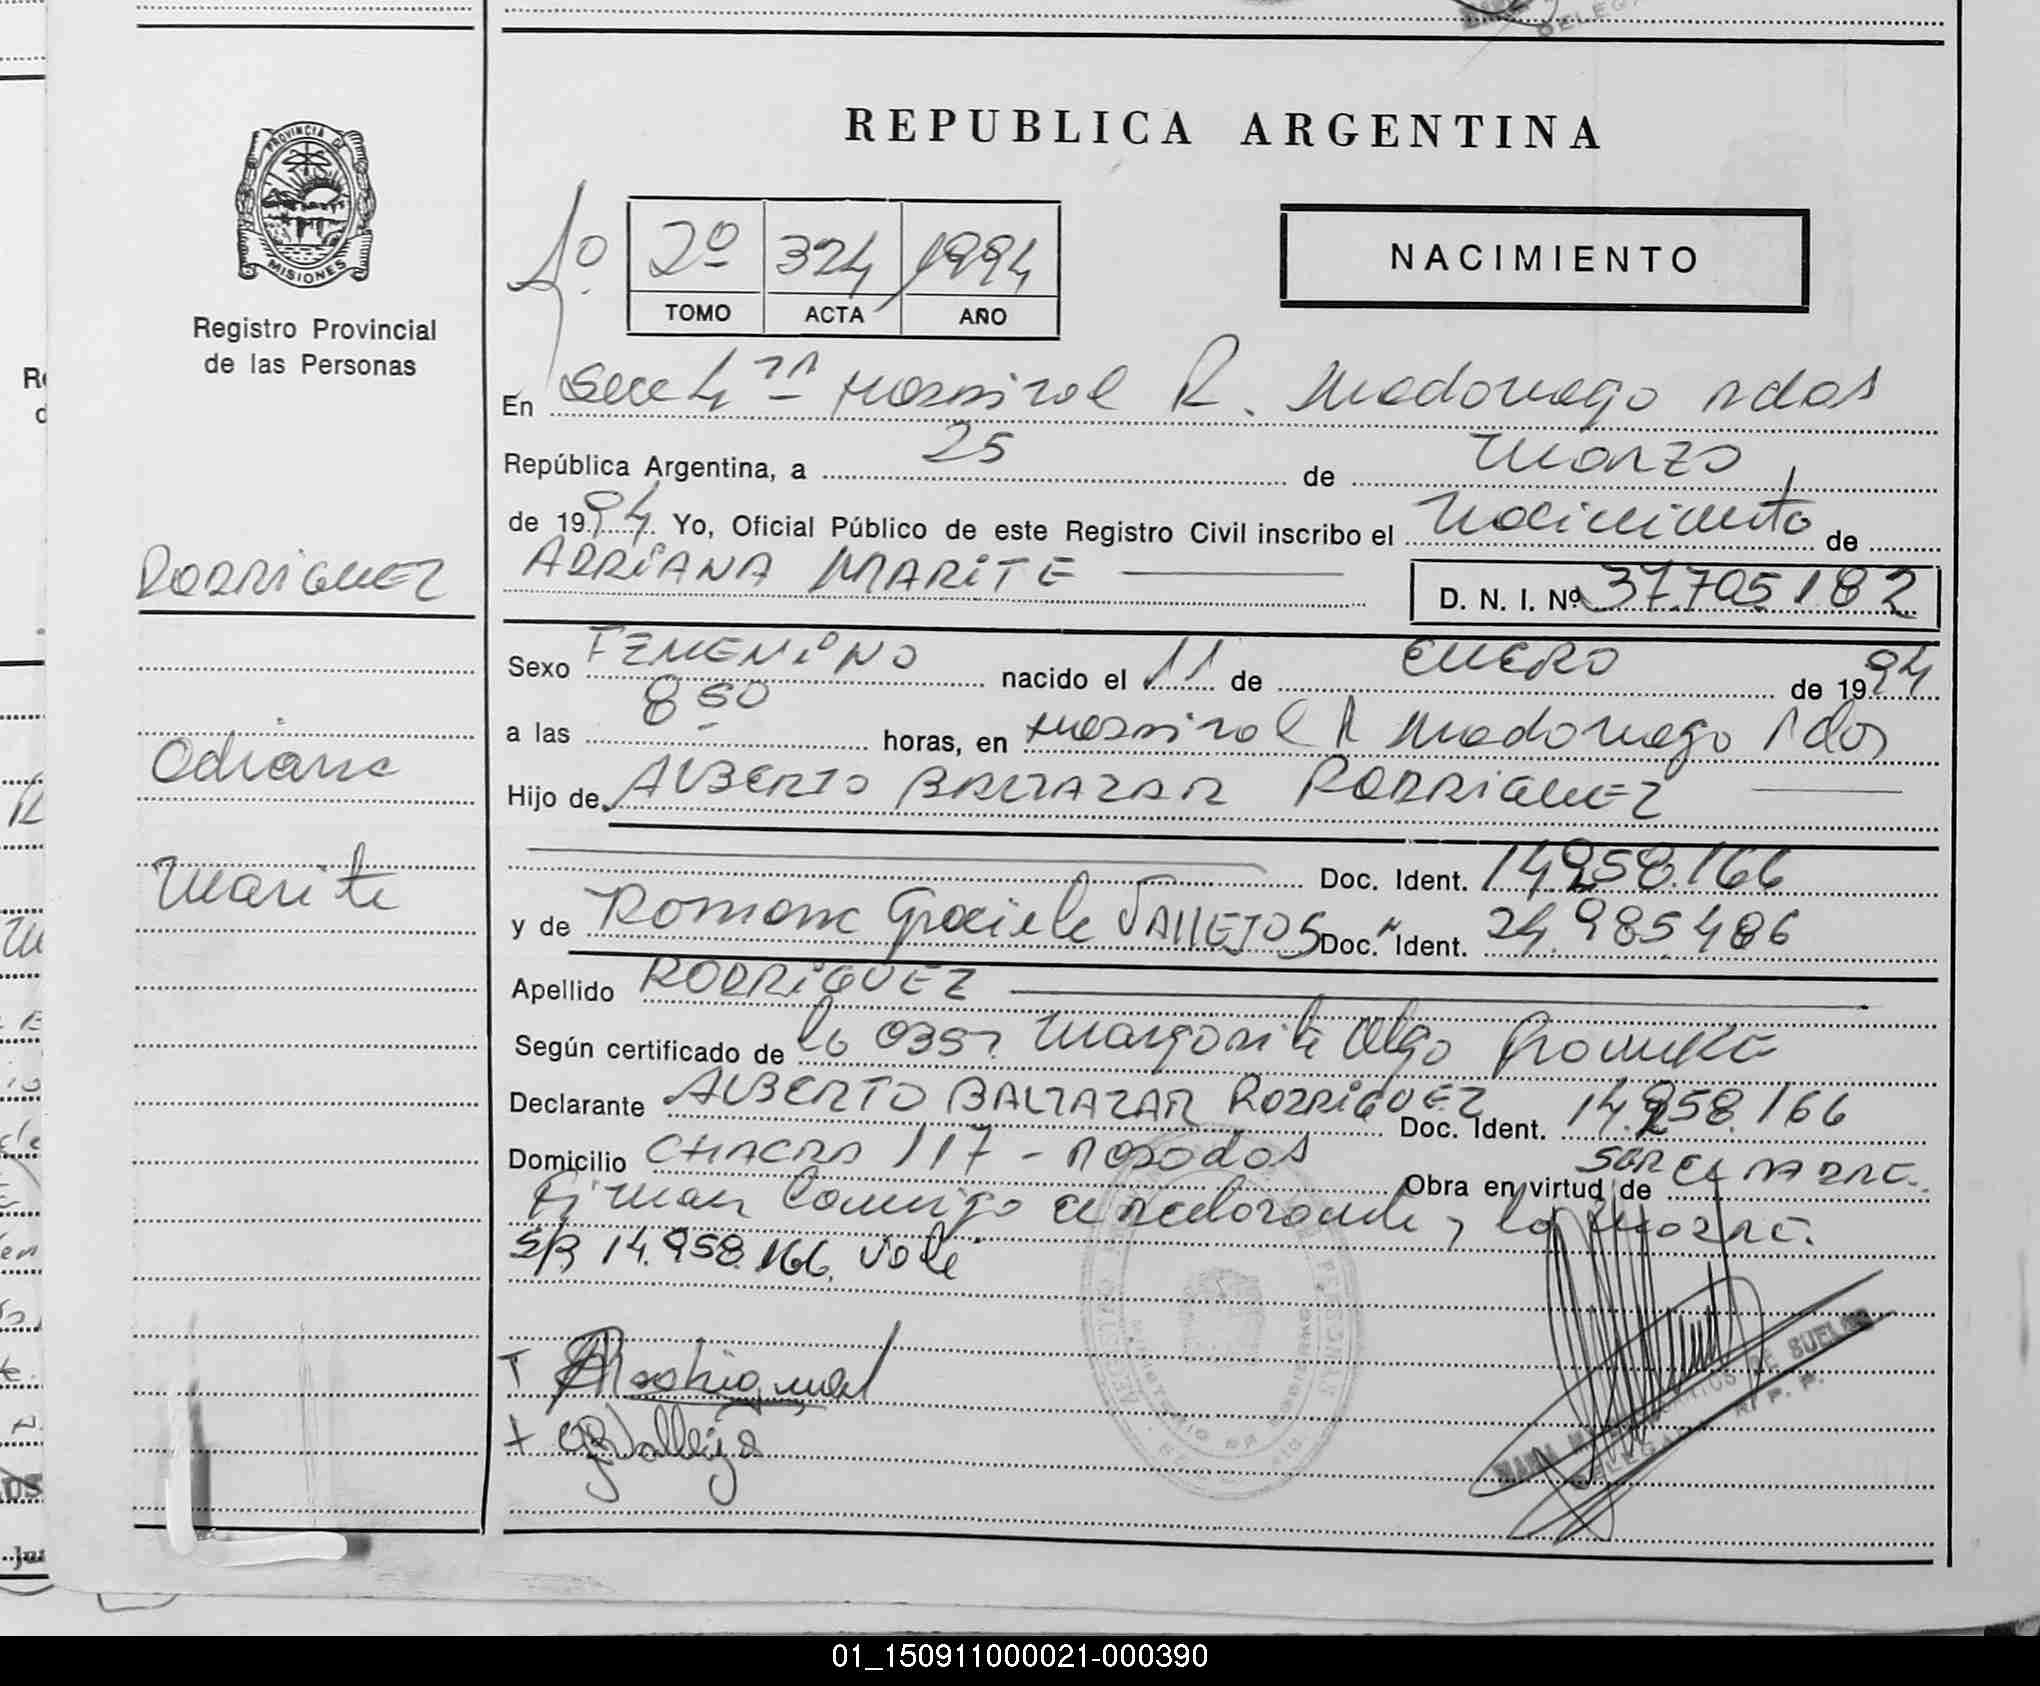 REPUBLICA ARGENTINA
PROVINCIA DE
MISIONES
Registro Provincial
de las Personas
1º
2º 324 1994
TOMO ACTA AÑO
NACIMIENTO
En Secc 4ta Hospital R. Madariaga Pdas
República Argentina, a 25 de Marzo
de 1994 Yo, Oficial Público de este Registro Civil inscribo el Nacimiento de
ADRIANA MARITE
D. N. I. Nº 37.705.182
RODRIGUEZ
Adriana
Marite
Sexo FEMENINO nacido el 11 de ENERO de 1994
a las 8 50 horas, en Hospital R Madariaga Pdas
Hijo de ALBERTO BALTAZAR RODRIGUEZ
Doc. Ident. 14.958.166
y de Ramona Graciela VALLEJOS Doc. Ident. 24.985.486
Apellido RODRIGUEZ
Según certificado de la Obst. Margarita Olga
Declarante ALBERTO BALTAZAR RODRIGUEZ Doc. Ident. 14.958.166
Domicilio CHACRA 117 - Posadas Obra en virtud de SER EL PADRE.
Firman Conmigo el declarante y la Madre.
S/B 14.958.166. Vale
DELEGADA R. P. P.
01_150911000021-000390